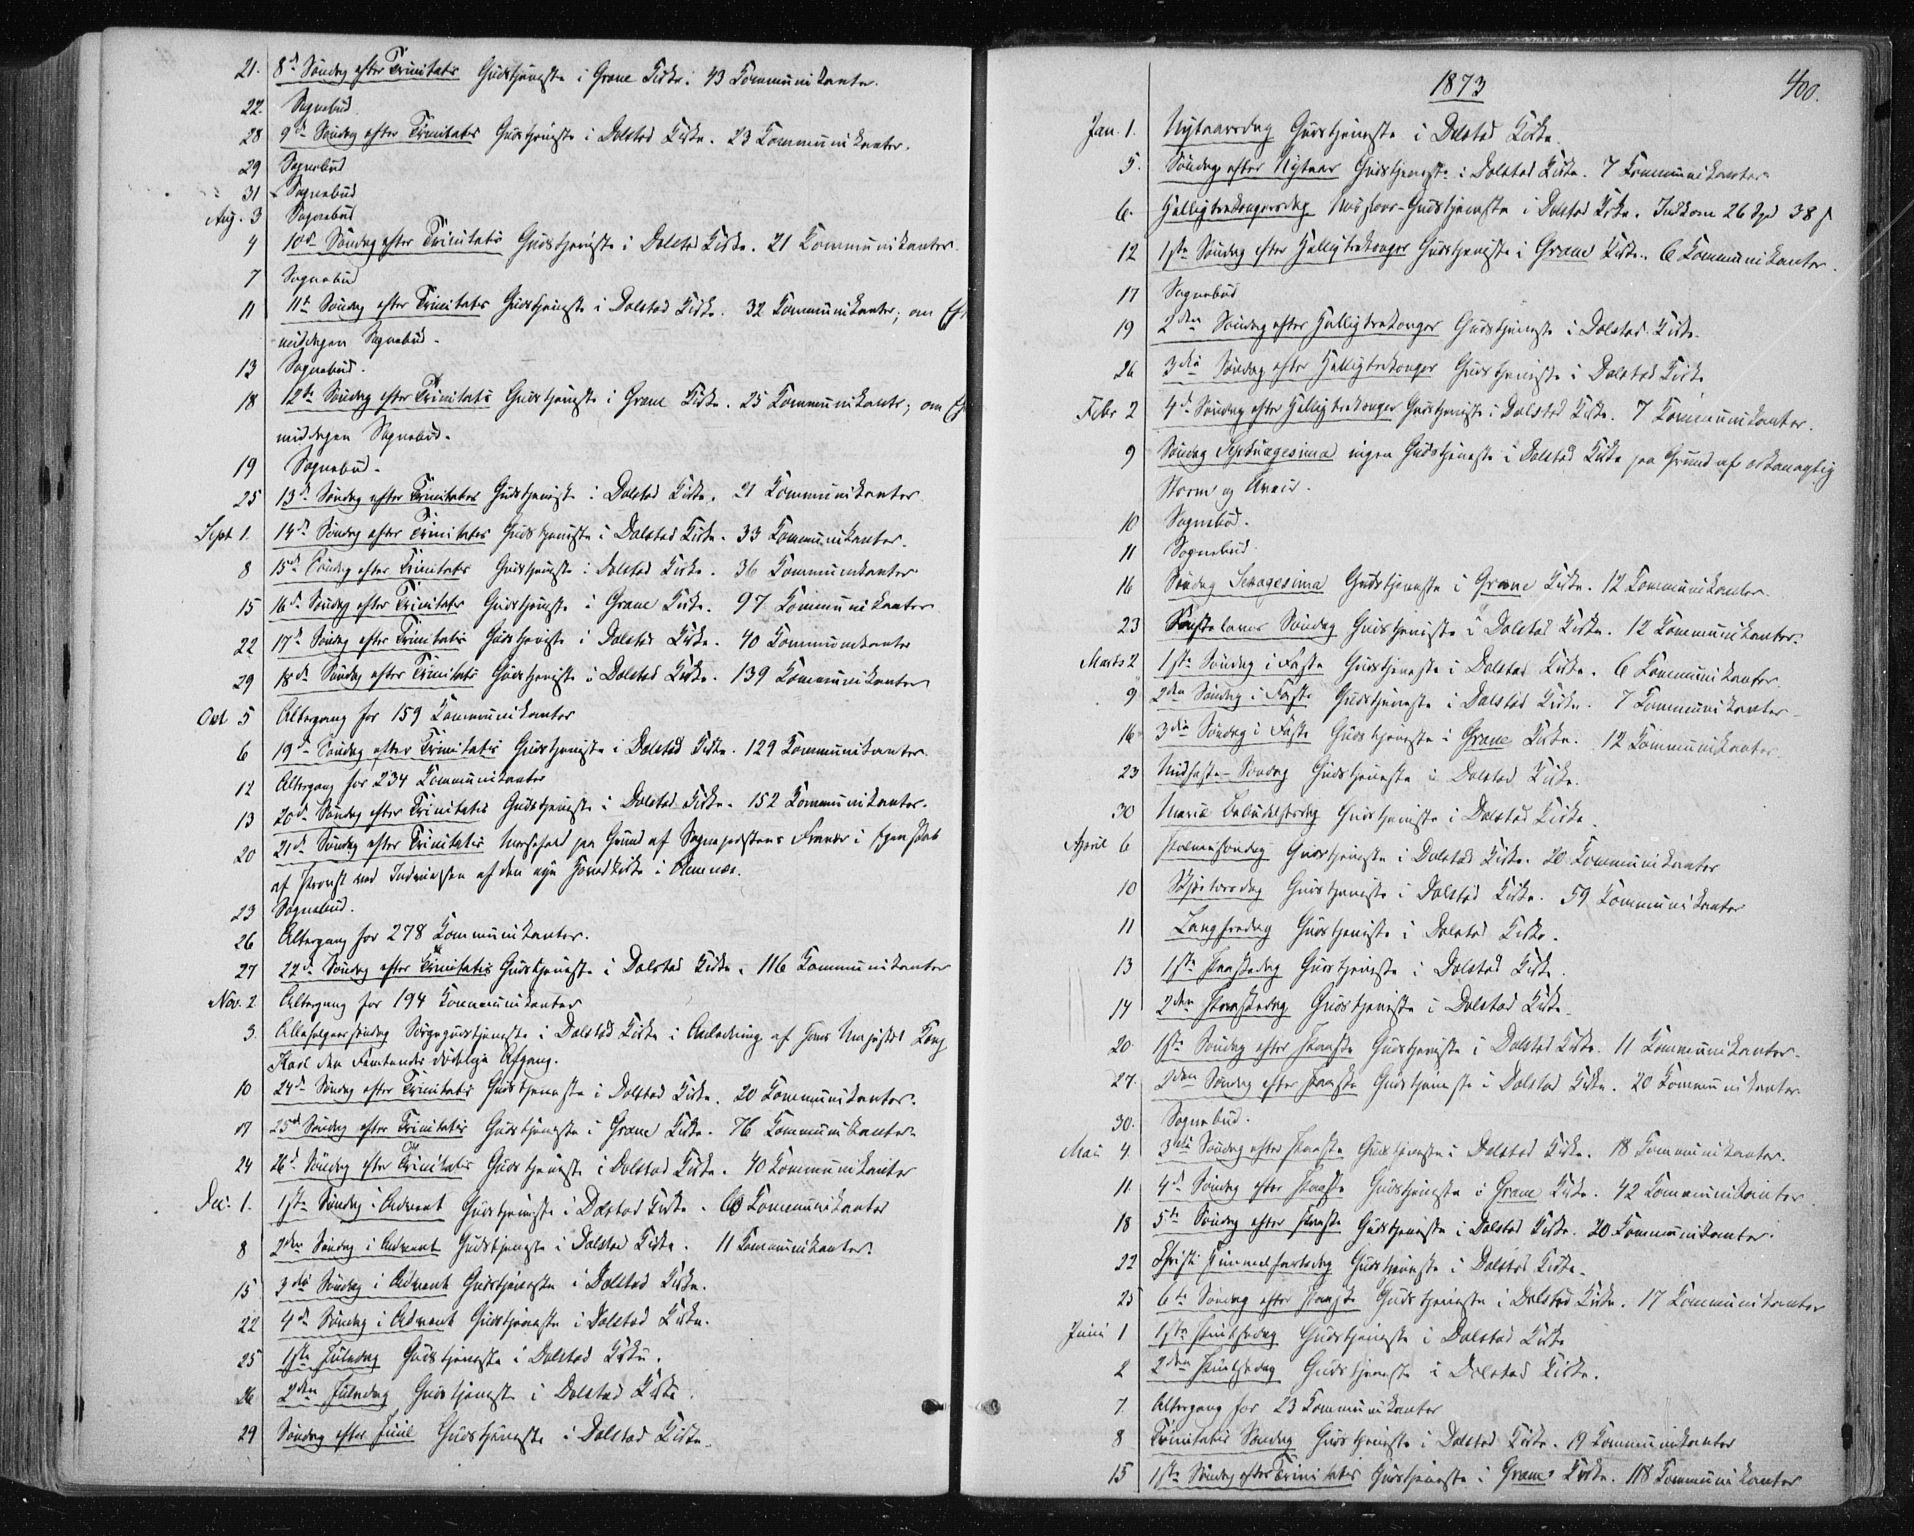 21. 8de Søndag efter Trinitatis Gudstjeneste i Grane Kirke. 43 Kommunikanter.
22. Sognebud
28 9de Søndag efter Trinitatis Gudstjeneste i Dolstad Kirke. 23 Kommunikanter.
29 Sognebud
31 Sognebud
Aug. 3 Sognebud
4 10de Søndag efter Trinitatis Gudstjeneste i Dolstad Kirke. 21 Kommunikanter.
7 Sognebud
11 11te Søndag efter Trinitatis Gudstjeneste i Dolstad Kirke. 32 Kommunikanter; om Ef
middagen Sognebud.
13 Sognebud.
18 12te Søndag efter Trinitatis Gudstjeneste i Grane Kirke. 25 Kommunikanter; om Ef
middagen Sognebud.
19 Sognebud.
25 13de Søndag efter Trinitatis Gudstjeneste i Dolstad Kirke. 21 Kommunikanter
Sept 1. 14de Søndag efter Trinitatis Gudstjeneste i Dolstad Kirke. 33 Kommunikanter.
8 15de Søndag efter Trinitatis Gudstjeneste i Dolstad Kirke. 36 Kommunikanter
15 16de Søndag efter Trinitatis Gudstjeneste i Grane Kirke. 97 Kommunikanter
22 17de Søndag efter Trinitatis Gudstjeneste i Dolstad Kirke. 40 Kommunikanter
29 18de Søndag efter Trinitatis Gudstjeneste i Dolstad Kirke. 139 Kommunikanter
Oct 5 Altergang for 159 Kommunikanter
6 19de Søndag efter Trinitatis Gudstjeneste i Dolstad Kirke. 129 Kommunikanter
12 Altergang for 234 Kommunikanter
13 20de Søndag efter Trinitatis Gudstjeneste i Dolstad Kirke. 152 Kommunikanter.
20 21de Søndag efter Trinitatis Messefald paa Grund af Sognepræstens Fravær i Egenskab
af Provst ved Indvielsen af den nye Hovedkirke i Hemnæs.
23 Sognebud.
26 Altergang for 278 Kommunikanter.
27 22de Søndag efter Trinitatis Gudstjeneste i Dolstad Kirke. 116 Kommunikanter
Nov. 2 Altergang for 194 Kommunikanter
3. Allehelgenssøndag Sørgegudstjeneste i Dolstad Kirke i Anledning af Hans Majestæt Kong
Karl den Femtendes dødelige Afgang.
10 24de Søndag efter Trinitatis Gudstjeneste i Dolstad Kirke. 20 Kommunikanter.
17 25de Søndag efter Trinitatis Gudstjeneste i Grane Kirke. 76 Kommunikanter.
24 26de Søndag efter Trinitatis Gudstjeneste i Dolstad Kirke. 40 Kommunikanter
Dec. 1. 1ste Søndag i Advent Gudstjeneste i Dolstad Kirke. Kommunikanter
8 2den Søndag i Advent Gudstjeneste i Dolstad Kirke. 11 Kommunikanter.
15 3die Søndag i Advent Gudstjeneste i Dolstad Kirke.
22 4de Søndag i Advent Gudstjeneste i Dolstad Kirke.
25 1ste Juledag Gudstjeneste i Dolstad Kirke.
26 2den Juledag Gudstjeneste i Dolstad Kirke.
29 Søndag efter Juul Gudstjeneste i Dolstad Kirke.
1873
400.
Jan. 1. Nytaarsdag Gudstjeneste i Dolstad Kirke.
5. Søndag efter Nytaar Gudstjeneste i Dolstad Kirke. 7 Kommunikanter
6. Helligtrekongersdag Missions-Gudstjeneste i Dolstad Kirke. Indkom 26 Spd 38 s
12 1ste Søndag efter Helligtrekonger Gudstjeneste i Grane Kirke. 6 Kommunikanter.
17 Sognebud
19 2den Søndag efter Helligtrekonger Gudstjeneste i Dolstad Kirke.
26 3die Søndag efter Helligtrekonger Gudstjeneste i Dolstad Kirke
Febr 2 4de Søndag efter Helligtrekonger Gudstjeneste i Dolstad Kirke. 7 Kommunikanter.
9 Søndag Septuagesima ingen Gudstjeneste i Dolstad Kirke paa Grund af orkanagtig
Storm og Uveir.
10 Sognebud.
11 Sognebud.
16 Søndag Sexagesima Gudstjeneste i Grane Kirke. 12 Kommunikanter.
23 Fastelavns Søndag Gudstjeneste i Dolstad Kirke. 12 Kommunikanter.
Marts 2 1ste Søndag i Faste Gudstjeneste i Dolstad Kirke. 6 Kommunikanter
9 2den Søndag i Faste Gudstjeneste i Dolstad Kirke. 7 Kommunikanter
16 3die Søndag i Faste Gudstjeneste i Grane Kirke. 12 Kommunikanter
23 Midfaste-Søndag Gudstjeneste i Dolstad Kirke.
30 Mariæ Bebudelsesdag Gudstjeneste i Dolstad Kirke.
April 6 Palmesøndag Gudstjeneste i Dolstad Kirke. 20 Kommunikanter
10 Skjærtorsdag Gudstjeneste i Dolstad Kirke. 59 Kommunikanter
11 Langfredag Gudstjeneste i Dolstad Kirke.
13 1ste Paaskedag Gudstjeneste i Dolstad Kirke.
14 2den Paaskedag Gudstjeneste i Dolstad Kirke.
20. 1ste Søndag efter Paaske Gudstjeneste i Dolstad Kirke. 11 Kommunikanter.
27. 2den Søndag efter Paaske Gudstjeneste i Dolstad Kirke. 20 Kommunikanter.
30. Sognebud.
Mai 4. 3die Søndag efter Paaske Gudstjeneste i Dolstad Kirke. 18 Kommunikanter.
11 4de Søndag efter Paaske Gudstjeneste i Grane Kirke. 42 Kommunikanter
18 5te Søndag efter Paaske Gudstjeneste i Dolstad Kirke. 20 Kommunikanter.
22 Christi Himmelfartsdag Gudstjeneste i Dolstad Kirke.
25 6te Søndag efter Paaske Gudstjeneste i Dolstad Kirke. 17 Kommunikanter
Juni 1 1ste Pintsedag Gudstjeneste i Dolstad Kirke
2 2den Pintsedag Gudstjeneste i Dolstad Kirke.
7. Altergang for 23 Kommunikanter
8 Trinitatis Søndag Gudstjeneste i Dolstad Kirke. 19 Kommunikanter
15 1ste Søndag efter Trinitatis Gudstjeneste i Grane Kirke. 118 Kommunikanter